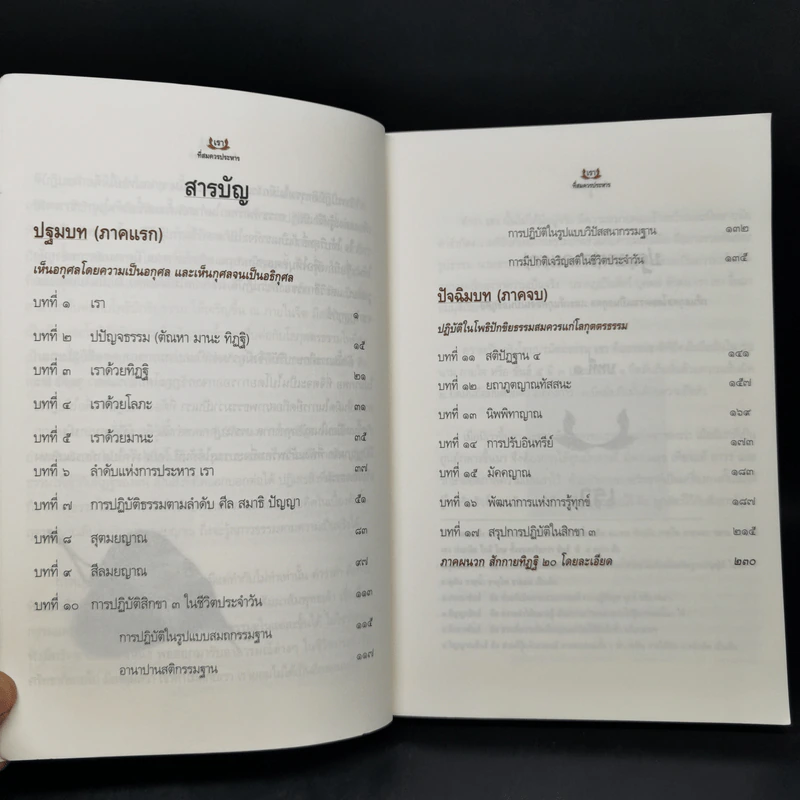 เรา
ที่สมควรประหาร
สารบัญ
ปฐมบท (ภาคแรก)
เห็นอกุศลโดยความเป็นอกุศล และเห็นกุศลจนเป็นอธิกุศล
บทที่ ๑ เรา ๑
บทที่ ๒ ปปัญจธรรม (ตัณหา มานะ ทิฏฐิ) ๑๕
บทที่ ๓ เราด้วยทิฏฐิ ๒๑
บทที่ ๔ เราด้วยโลภะ ๓๑
บทที่ ๕ เราด้วยมานะ ๓๕
บทที่ ๖ ลำดับแห่งการประหาร เรา ๓๗
บทที่ ๗ การปฏิบัติธรรมตามลำดับ ศีล สมาธิ ปัญญา ๕๑
บทที่ ๘ สุตมยญาณ ๘๓
บทที่ ๙ สีลมยญาณ ๙๗
บทที่ ๑๐ การปฏิบัติสิกขา ๓ ในชีวิตประจำวัน ๑๑๓
การปฏิบัติในรูปแบบสมถกรรมฐาน ๑๑๕
อานาปานสติกรรมฐาน ๑๑๗
เรา
ที่สมควรประหาร
การปฏิบัติในรูปแบบวิปัสสนากรรมฐาน ๑๓๒
การมีปกติเจริญสติในชีวิตประจำวัน ๑๓๕
ปัจฉิมบท (ภาคจบ)
ปฏิบัติในโพธิปักขิยธรรมสมควรแก่โลกุตตรธรรม
บทที่ ๑๑ สติปัฏฐาน ๔ ๑๔๑
บทที่ ๑๒ ยถาภูตญาณทัสสนะ ๑๕๗
บทที่ ๑๓ นิพพิทาญาณ ๑๖๙
บทที่ ๑๔ การปรับอินทรีย์ ๑๗๓
บทที่ ๑๕ มัคคญาณ ๑๘๓
บทที่ ๑๖ พัฒนาการแห่งการรู้ทุกข์ ๑๘๗
บทที่ ๑๗ สรุปการปฏิบัติในสิกขา ๓ ๒๑๕
ภาคผนวก สักกายทิฏฐิ ๒๐ โดยละเอียด ๒๓๐